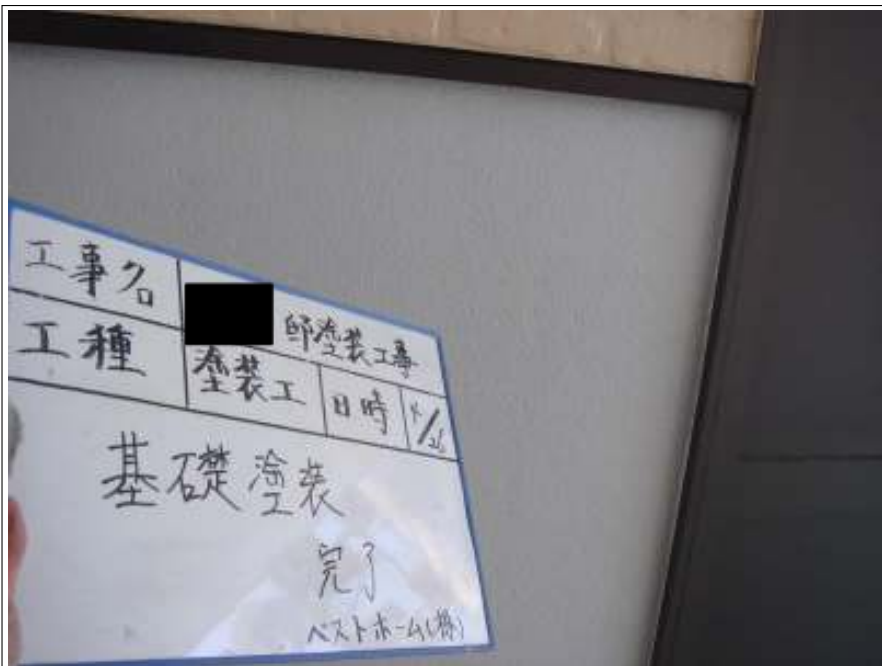 工事名 邸塗装工事
工種 塗装工 日時 /26
基礎塗装
完了
ベストホーム(株)